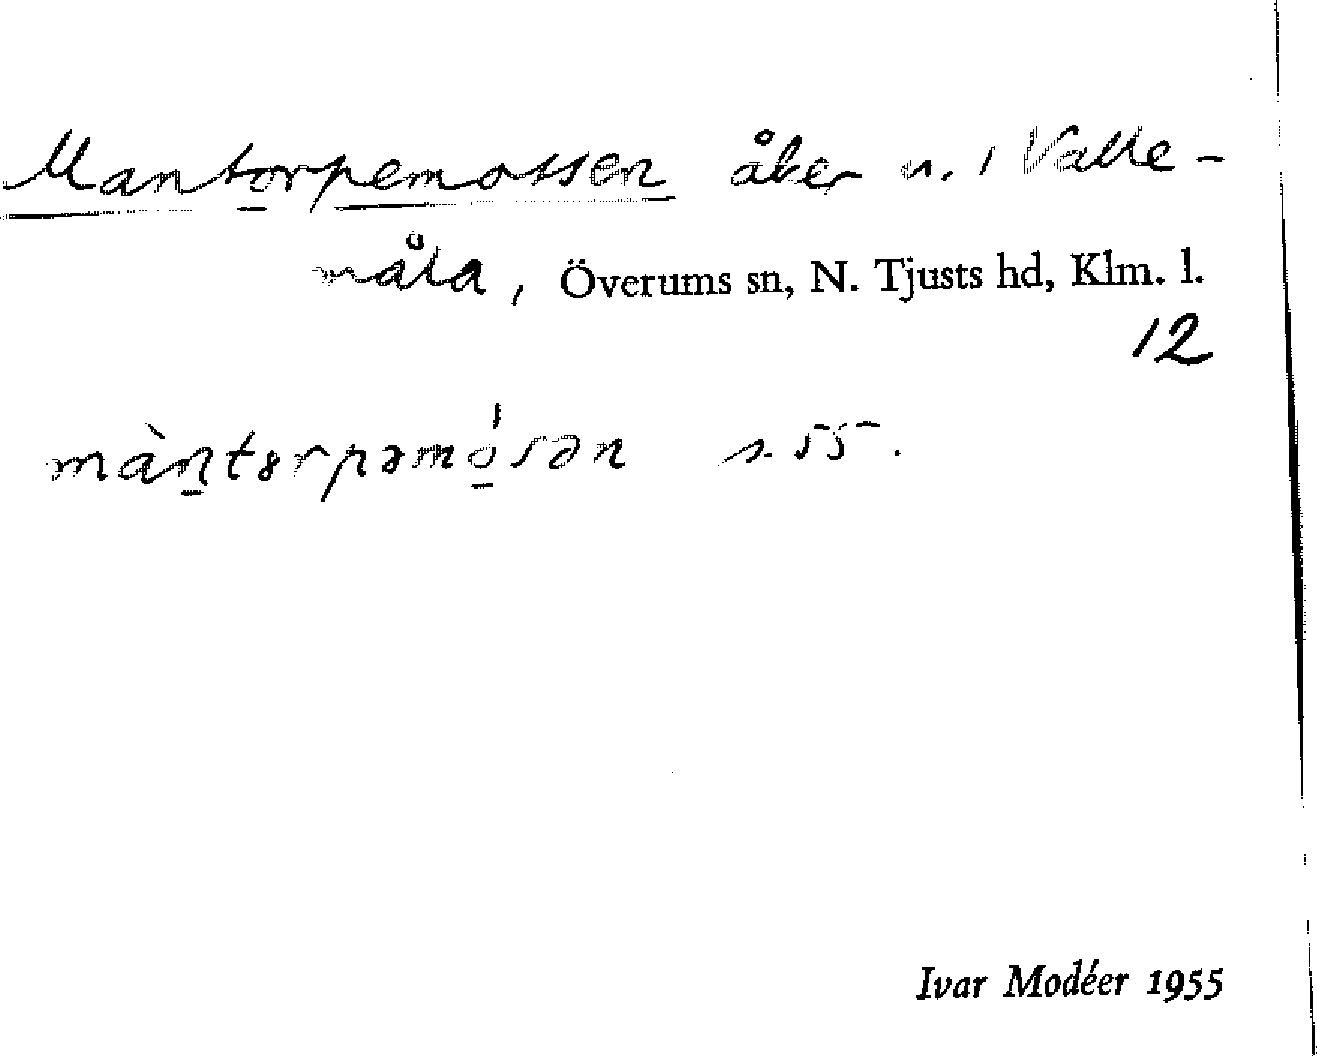 Mantorpemossen åker n. i Valle-
måla, Överums sn, N. Tjusts hd, Klm. l.
12
màntɞrpəmó̱sən s. 55.
Ivar Modéer 1955